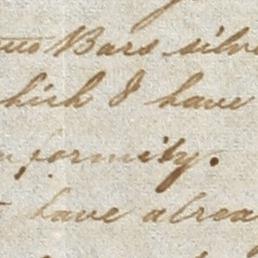 two Bars silv
which I have
formity.
have alrea